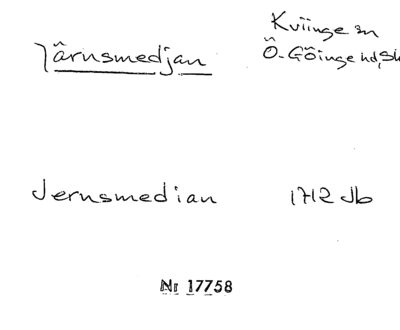 Kviinge sn
Järnsmedjan Ö-Göinge hd, Sk
Jernsmedian 1712 Jb
Nr 17758